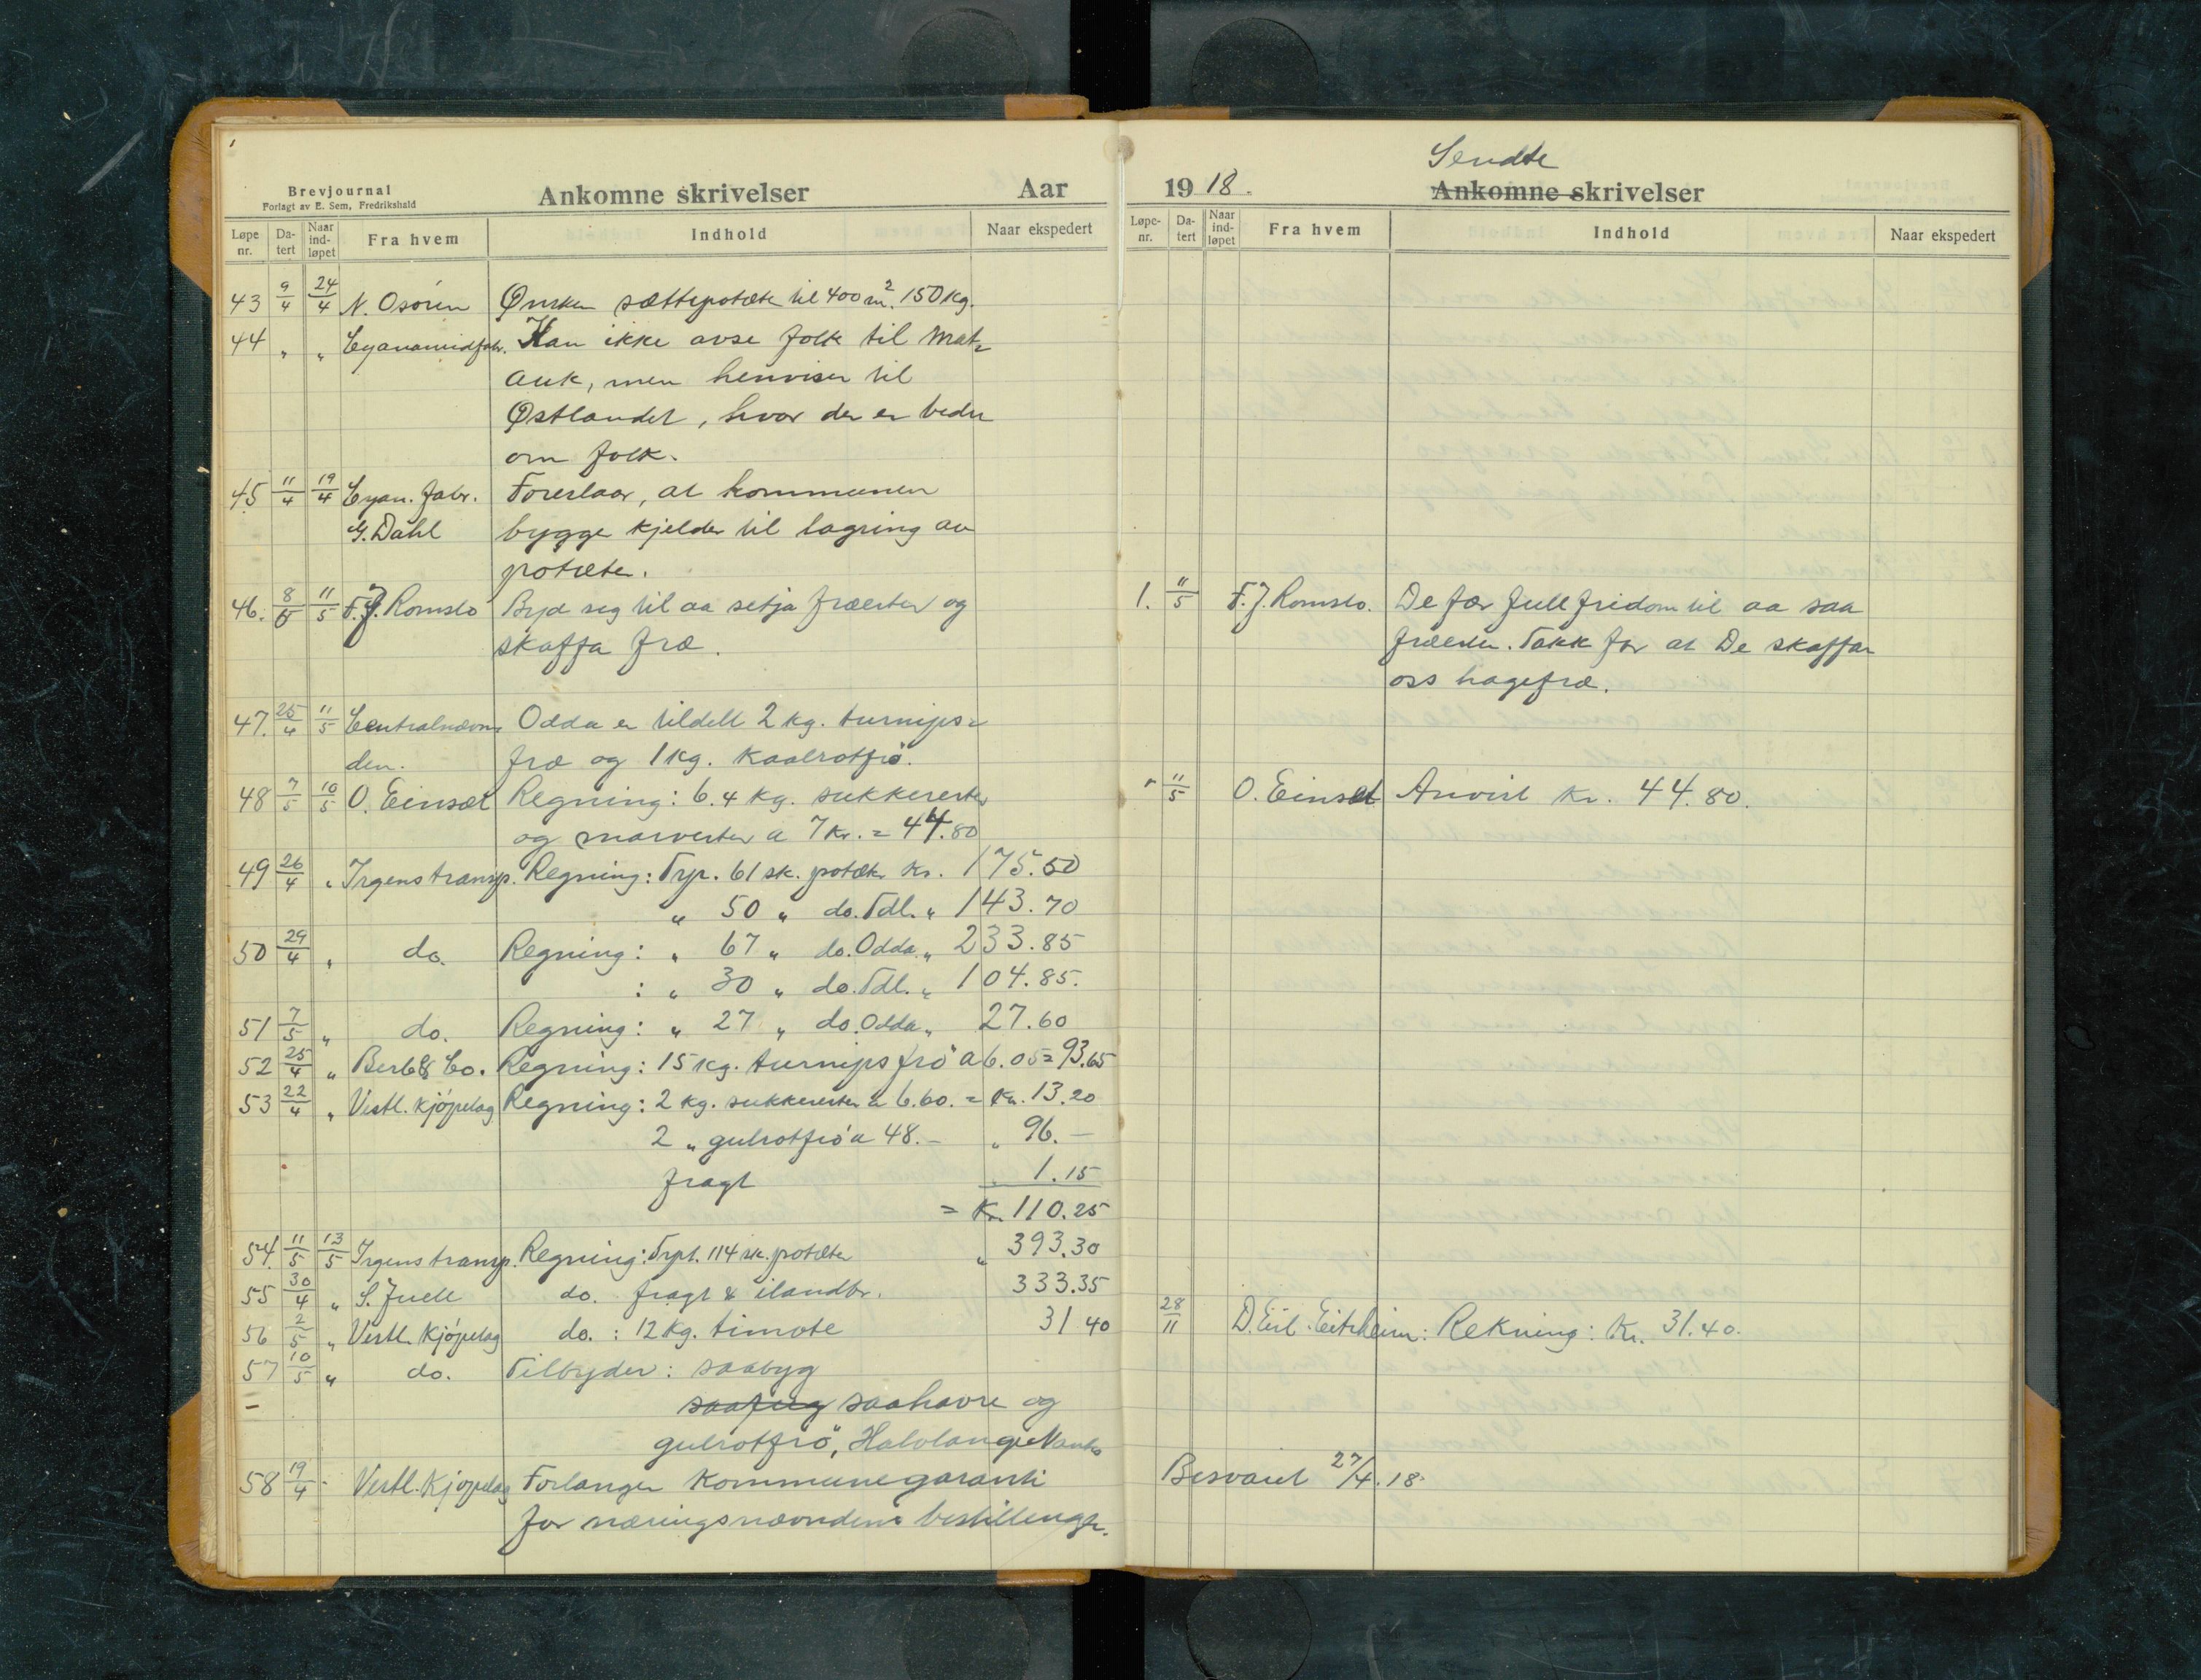 Brevjournal
Forlagt av E. Sem, Fredrikshald
Ankomne skrivelser
Aar
Løpe nr.
Datert
Naar indløpet
Fra hvem
Indhold
Naar ekspedert
43 9/4 24/4 N. Osøren Ønsker sættepotæter til 400 m². 150 kg.
44 " " Cyanamidfabr. Kan ikke avse folk til mat=
auk, men henviser til
Østlandet, hvor der er bedre
om folk.
45 11/4 19/4 Cyan. fabr. Foreslaar, at kommunen
G. Dahl bygge kjelder til lagring av
potæter.
46. 8/5 11/5 F. J. Romslo Byd seg til aa setja fræerter og
skaffa fræ.
47. 25/4 11/5 Centralnævn= Odda er tildelt 2 kg. turnips=
den. fræ og 1 kg. kaalrotfrö.
48 7/5 10/5 O. Einset Regning: 6.4 kg. sukkererter
og marverter a 7 kr. = 44.80
49 26/4 " Irgens transp. Regning: Trp. 61 sk. potæter Kr. 175.50
" 50 " do. Tdl. " 143.70
50 29/4 " do. Regning: " 67 " do. Odda. " 233.85
: " 30 " do. Tdl. " 104.85.
51 7/5 " do. Regning: " 27 " do. Odda " 27.60
52 25/4 " Berl & Co. Regning: 15 kg. turnipsfrö a 6.05 = 93.65
53 22/4 " Vestl. kjöpelag Regning: 2 kg. sukkererter a 6.60. = Kr. 13.20
2 " gulrotfrö a 48.- " 96.-
fragt 1.15
= Kr. 110.25
54. 11/5 13/5 Irgens transp. Regning: Trpt. 114 sk. potæter " 393.30
55 30/4 " S. Juell do. fragt & ilandbr. 333.35
56 2/5 " Vestl. Kjöpelag do. : 12 kg. timote 31 40
57 10/5 " do. Tilbyder: saabyg
saarug saahavre og
gulrotfrö, Halvlange Nantes
58 19/4 - Vestl. Kjöpelag Forlanger kommunegaranti
for næringsnævndens bestillinger.
1918.
Sendte
Ankomne skrivelser
Løpe-nr.
Datert
Naar indløpet
Fra hvem
Indhold
Naar ekspedert
1. 11/5 F. J. Romslo. De fær full fridom til aa saa
fræerter. Takk for at De skaffar
oss hagefræ.
" 11/5 O. Einset Anvist kr. 44.80.
28/11 D. Eitrheim: Rekning: Kr. 31.40.
Besvaret 27/4.18.